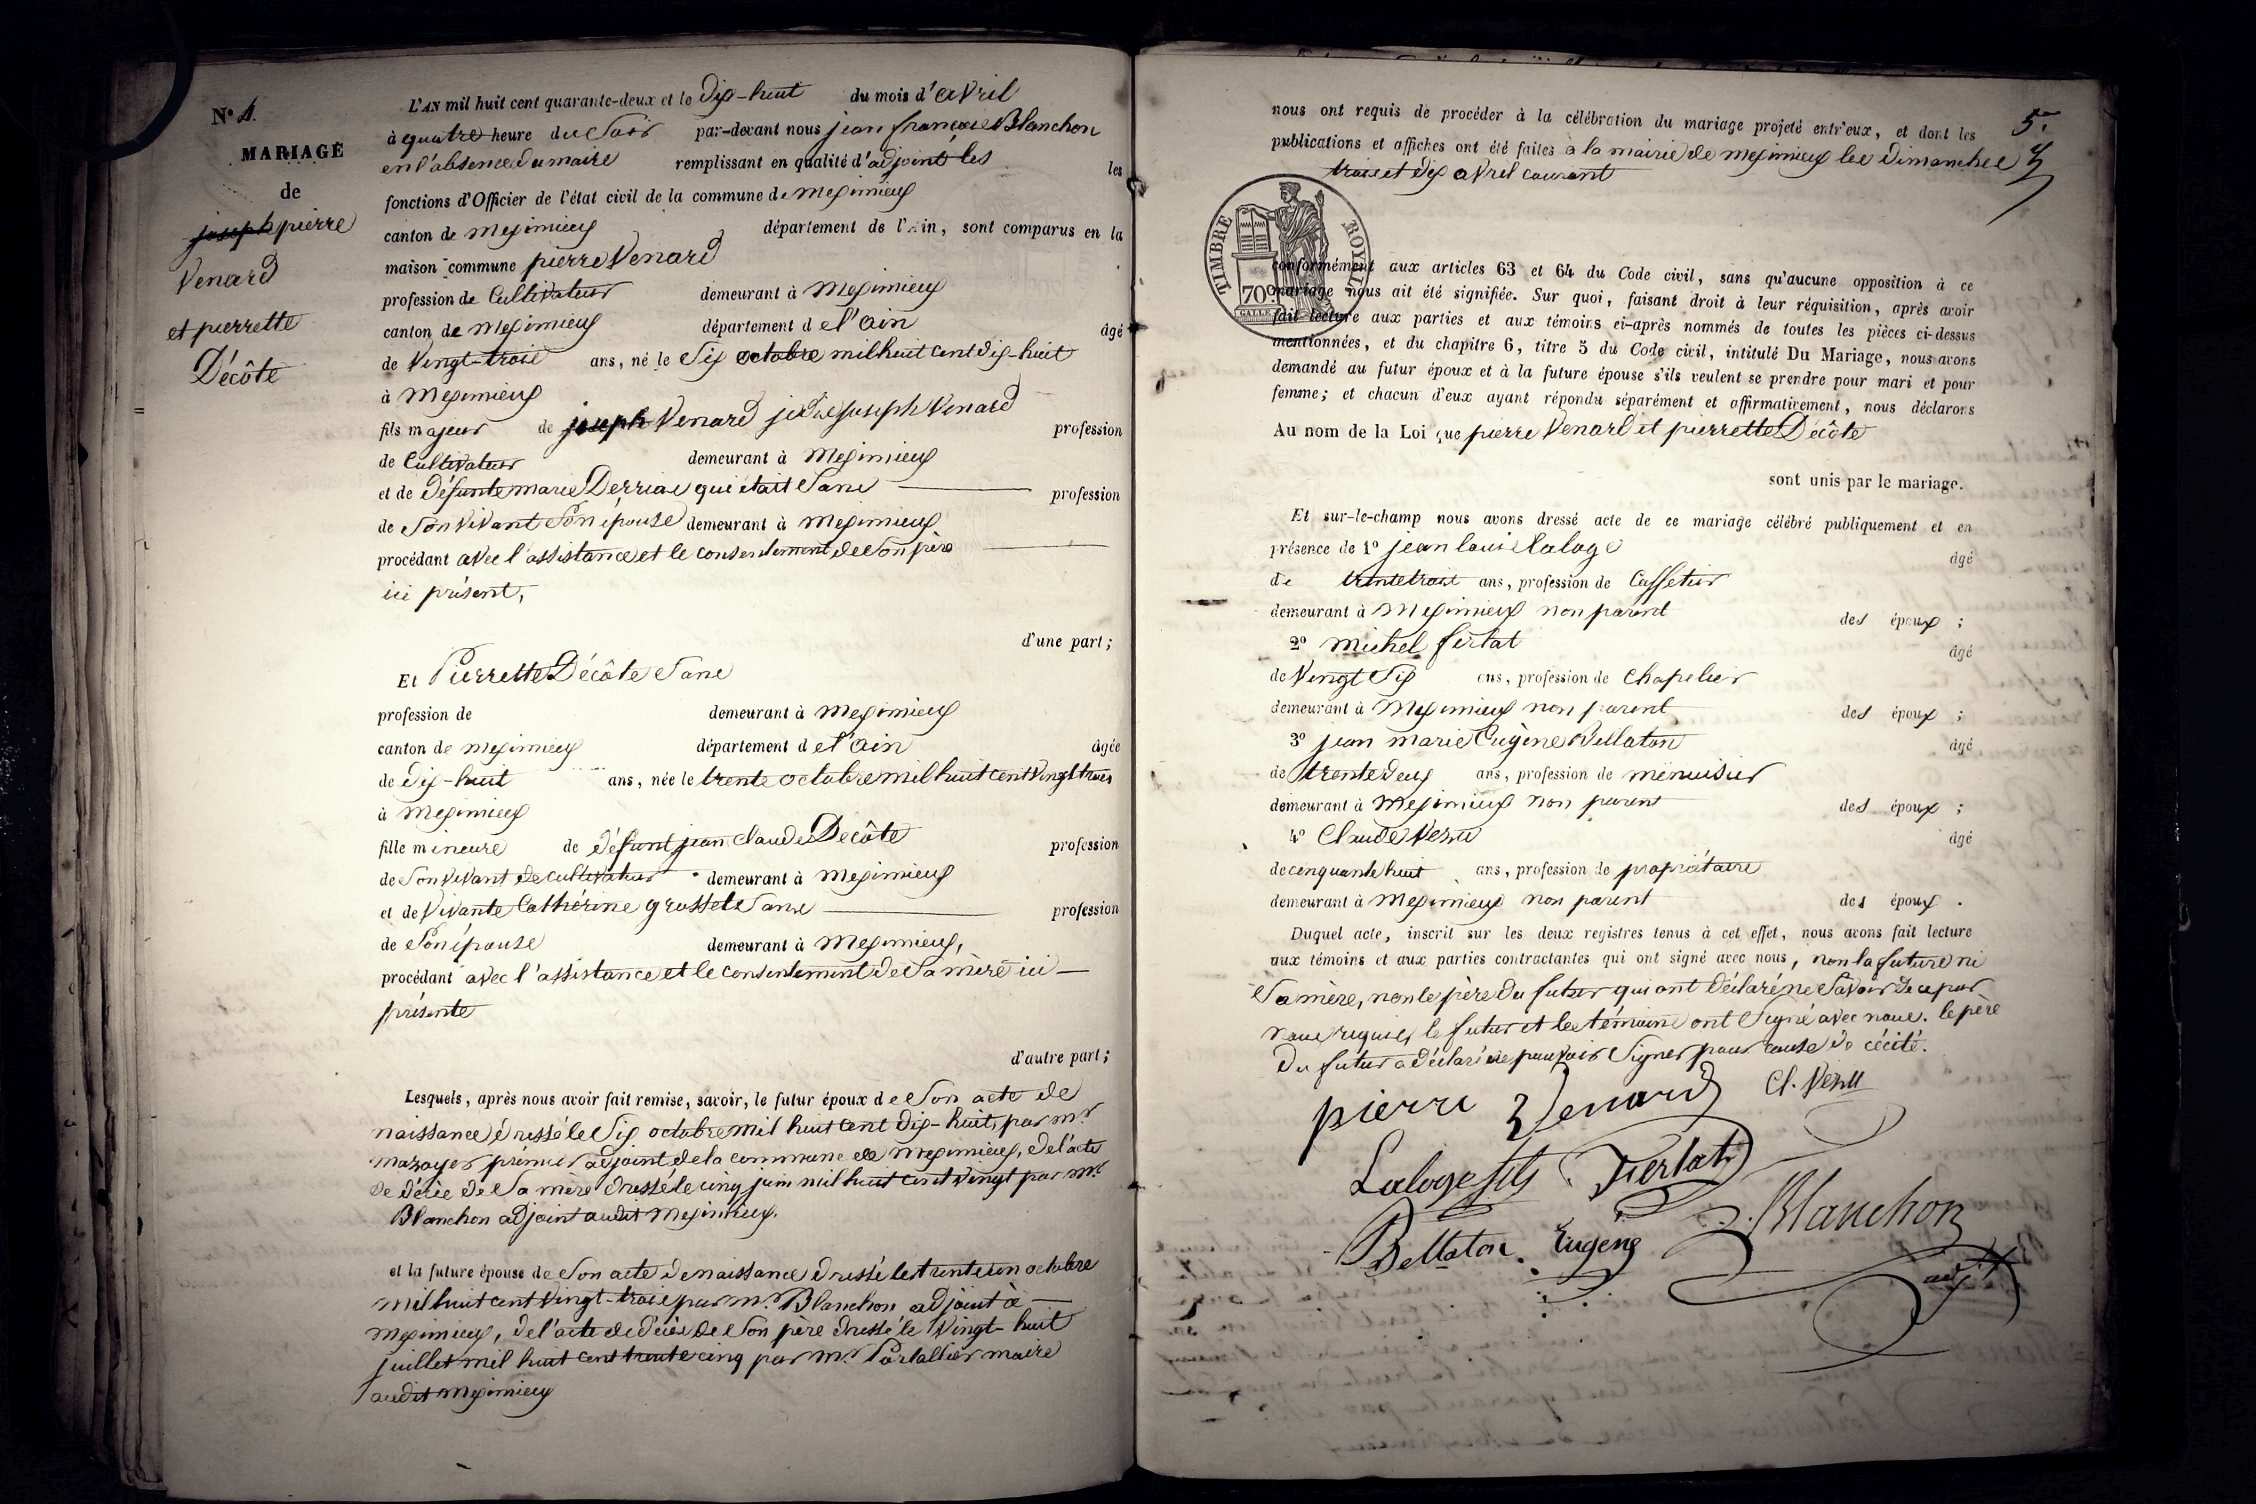 N.º 4.
MARIAGE
de
joseph pierre
Venard
et pierrette
Décôte
L'AN mil huit cent quarante-deux et le dix-huit du mois d'avril
à quatre heure du Soir par-devant nous jean françois Blanchon
en l'absence du maire remplissant en qualité d'adjoint les les
fonctions d'Officier de l'état civil de la commune de meximieux
canton de meximieux département de l'Ain, sont comparus en la
maison commune pierre Venard
profession de Cultivateur demeurant à Meximieux
canton de Meximieux département de l'ain âgé
de Vingt-trois ans, né le Six octobre mil huit cent dix-huit
à Meximieux
fils majeur de joseph Venard je dis joseph Venard profession
de Cultivateur demeurant à Meximieux
et de défunte marie Derriae qui était Sans profession
de Son vivant Son épouse demeurant à Meximieux
procédant avec l'assistance et le consentement de Son père
ici présent,
d'une part;
Et Pierrette Décôte Sans
profession de demeurant à Meximieux
canton de meximieux département de l'ain âgée
de dix-huit ans, née le trente octobre mil huit cent vingt trois
à Meximieux
fille mineure de défunt jean Claude Decôte profession
de Son vivant de cultivateur demeurant à Meximieux
et de Vivante Cathérine grosset Sans profession
de Son épouse demeurant à Meximieux,
procédant avec l'assistance et le consentement de Sa mère ici
présente
d'autre part;
Lesquels, après nous avoir fait remise, savoir, le futur époux de Son acte de
naissance dressé le Six octobre mil huit cent dix-huit, par mr
mazoyer prémier adjoint de la commune de Meximieux, de l'acte
de décès de Sa mère dressé le cinq juin mil huit cent vingt par mr
Blanchon adjoint audit Meximieux.
et la future épouse de Son acte de naissance dressé le trente un octobre
mil huit cent vingt-trois par mr. Blanchon adjoint à
Meximieux, de l'acte de décès de Son père dressé le Vingt-huit
juillet mil huit cent trente cinq par mr. Portallier maire
audit Meximieux
5.
nous ont requis de procéder à la célébration du mariage projeté entr'eux, et dont les
publications et affiches ont été faites à la mairie de meximieux les dimanches
trois et dix avril courant
TIMBRE ROYAL
70
conformément aux articles 63 et 64 du Code civil, sans qu'aucune opposition à ce
mariage nous ait été signifiée. Sur quoi, faisant droit à leur réquisition, après avoir
fait lecture aux parties et aux témoins ci-après nommés de toutes les pièces ci-dessus
mentionnées, et du chapitre 6, titre 5 du Code civil, intitulé Du Mariage, nous avons
demandé au futur époux et à la future épouse s'ils veulent se prendre pour mari et pour
femme; et chacun d'eux ayant répondu séparément et affirmativement, nous déclarons
Au nom de la Loi que pierre Venard et pierrette Décôte
sont unis par le mariage.
Et sur-le-champ nous avons dressé acte de ce mariage célébré publiquement et en
présence de 1º jean louis Laloge âgé
de trente trois ans, profession de Caffetier
demeurant à Meximieux non parent des époux ;
2º michel fertat âgé
de Vingt Six ans, profession de Chapelier
demeurant à Meximieux non parent des époux ;
3º jean marie Eugène Bellaton âgé
de trente deux ans, profession de menuisier
demeurant à Meximieux non parent des époux ;
4º Claude Venu âgé
de cinquante huit ans, profession de propriétaire
demeurant à Meximieux non parent des époux .
Duquel acte, inscrit sur les deux registres tenus à cet effet, nous avons fait lecture
aux témoins et aux parties contractantes qui ont signé avec nous, non la future ni
Sa mère, non le père du futur qui ont déclaré ne Savoir de ce par
nous requis, le futur et les témoins ont Signé avec nous. le père
du futur a déclaré ne pouvoir Signer pour cause de cécité.
pierre Venard Cl. Venu
Laloge fils Fertat
Bellaton Eugéne Blanchon
adjt